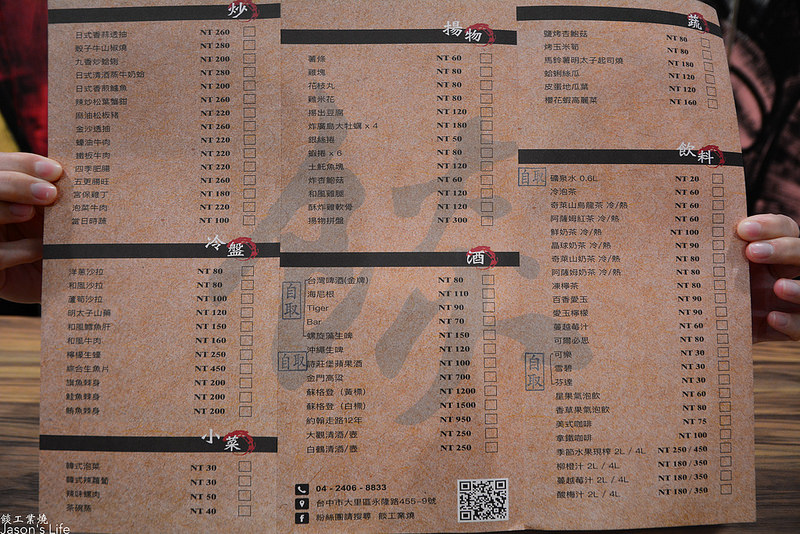 炒
日式香蒜透抽 NT 260
骰子牛山椒燒 NT 280
九香炒蛤蜊 NT 200
日式清酒蒸牛奶蛤 NT 280
日式香煎鱸魚 NT 200
辣炒松葉蟹鉗 NT 260
麻油松板豬 NT 220
金沙透抽 NT 260
蠔油牛肉 NT 220
鐵板牛肉 NT 220
四季肥腸 NT 220
五更腸旺 NT 260
宮保雞丁 NT 180
泡菜牛肉 NT 220
當日時蔬 NT 100
冷盤
洋蔥沙拉 NT 80
和風沙拉 NT 80
蘆筍沙拉 NT 100
明太子山藥 NT 120
和風鱈魚肝 NT 150
和風牛肉 NT 160
檸檬生蠔 NT 250
綜合生魚片 NT 450
旗魚刺身 NT 200
鮭魚刺身 NT 200
鮪魚刺身 NT 200
小菜
韓式泡菜 NT 30
韓式辣蘿蔔 NT 30
辣味螺肉 NT 50
茶碗蒸 NT 40
揚物
薯條 NT 60
雞塊 NT 80
花枝丸 NT 80
雞米花 NT 80
揚出豆腐 NT 120
炸廣島大牡蠣 x 4 NT 180
銀絲捲 NT 50
x 6 NT 80
土魠魚塊 NT 120
炸杏鮑菇 NT 60
和風雞腿 NT 120
酥炸雞軟骨 NT 120
揚物拼盤 NT 300
酒
自取
台灣啤酒(金牌) NT 80
海尼根 NT 110
Tiger NT 90
Bar NT 70
螺旋藻生啤 NT 150
沖繩生啤 NT 120
自取
詩莊堡蘋果酒 NT 100
金門高粱 NT 700
蘇格登（黃標） NT 1200
蘇格登（白標） NT 1500
約翰走路12年 NT 950
大觀清酒/壺 NT 250
白鶴清酒/壺 NT 250
04 - 2406 - 8833
台中市大里區永隆路455-9號
粉絲團請搜尋: 餤工業燒
蔬
鹽烤杏鮑菇 NT 80
烤玉米筍 NT 80
馬鈴薯明太子起司燒 NT 180
蛤蜊絲瓜 NT 120
皮蛋地瓜葉 NT 120
櫻花蝦高麗菜 NT 160
飲料
自取
礦泉水 0.6L NT 20
冷泡茶 NT 60
奇萊山烏龍茶 冷/熱 NT 60
阿薩姆紅茶 冷/熱 NT 60
鮮奶茶 冷/熱 NT 100
晶球奶茶 冷/熱 NT 90
奇萊山奶茶 冷/熱 NT 80
阿薩姆奶茶 冷/熱 NT 80
凍檸茶 NT 80
百香愛玉 NT 90
愛玉檸檬 NT 90
蔓越莓汁 NT 60
可爾必思 NT 80
自取
可樂 NT 30
雪碧 NT 30
芬達 NT 30
星果氣泡飲 NT 60
香草果氣泡飲 NT 80
美式咖啡 NT 75
拿鐵咖啡 NT 100
季節水果現榨 2L / 4L NT 250 / 450
柳橙汁 2L / 4L NT 180 / 350
蔓越莓汁 2L / 4L NT 180 / 350
酸梅汁 2L / 4L NT 180 / 350
餤工業燒
Jason's Life